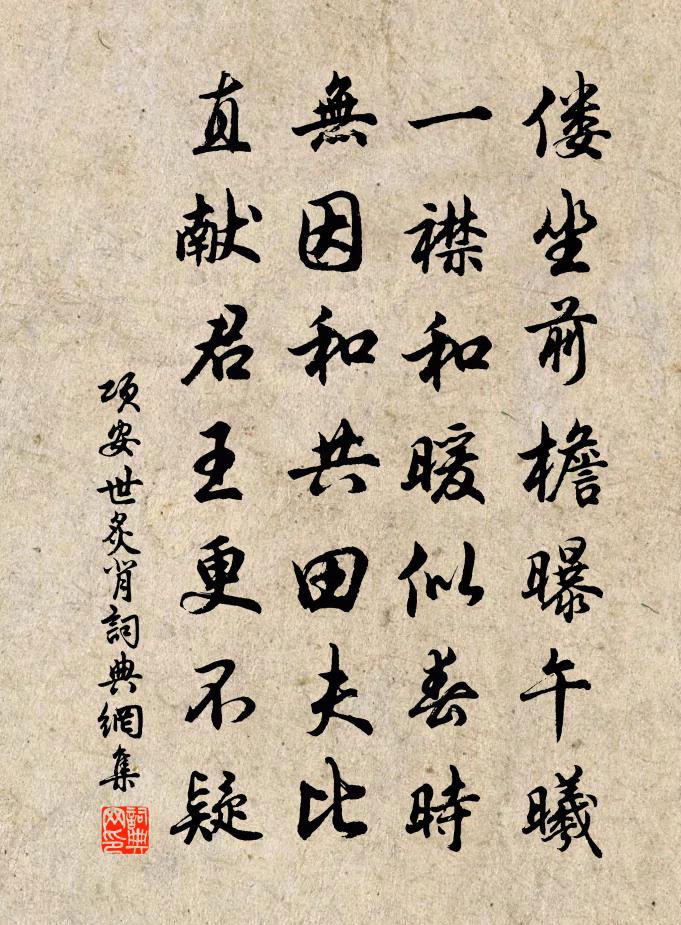 傴坐前檐曝午曦
一襟和暖似春時
無因和共田夫比
直献君王更不疑
項安世炙背詞典網集
詞典網印